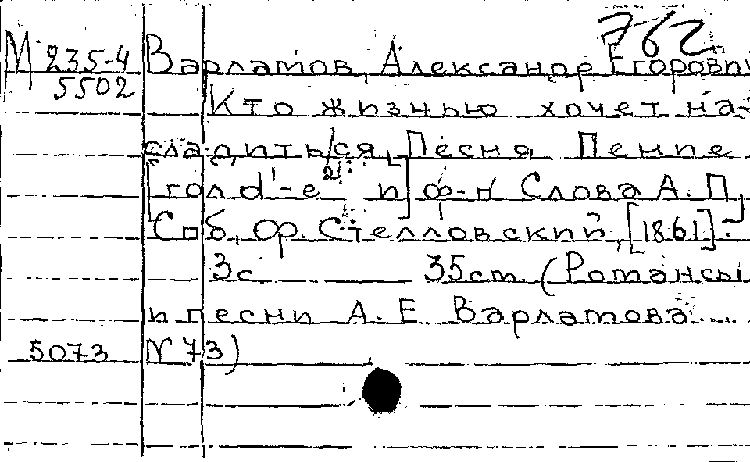 762
М 235-4 Варламов, Александр Егорович
5502 Кто жизнью хочет на-
сладиться, Песня Пение
[голоd'-е и ф-н Слова А. П,
Спб, Ф. Стелловский, [1861].
3с 35см (Романсы
и песни А. Е Варламова ...
5073 N 73)